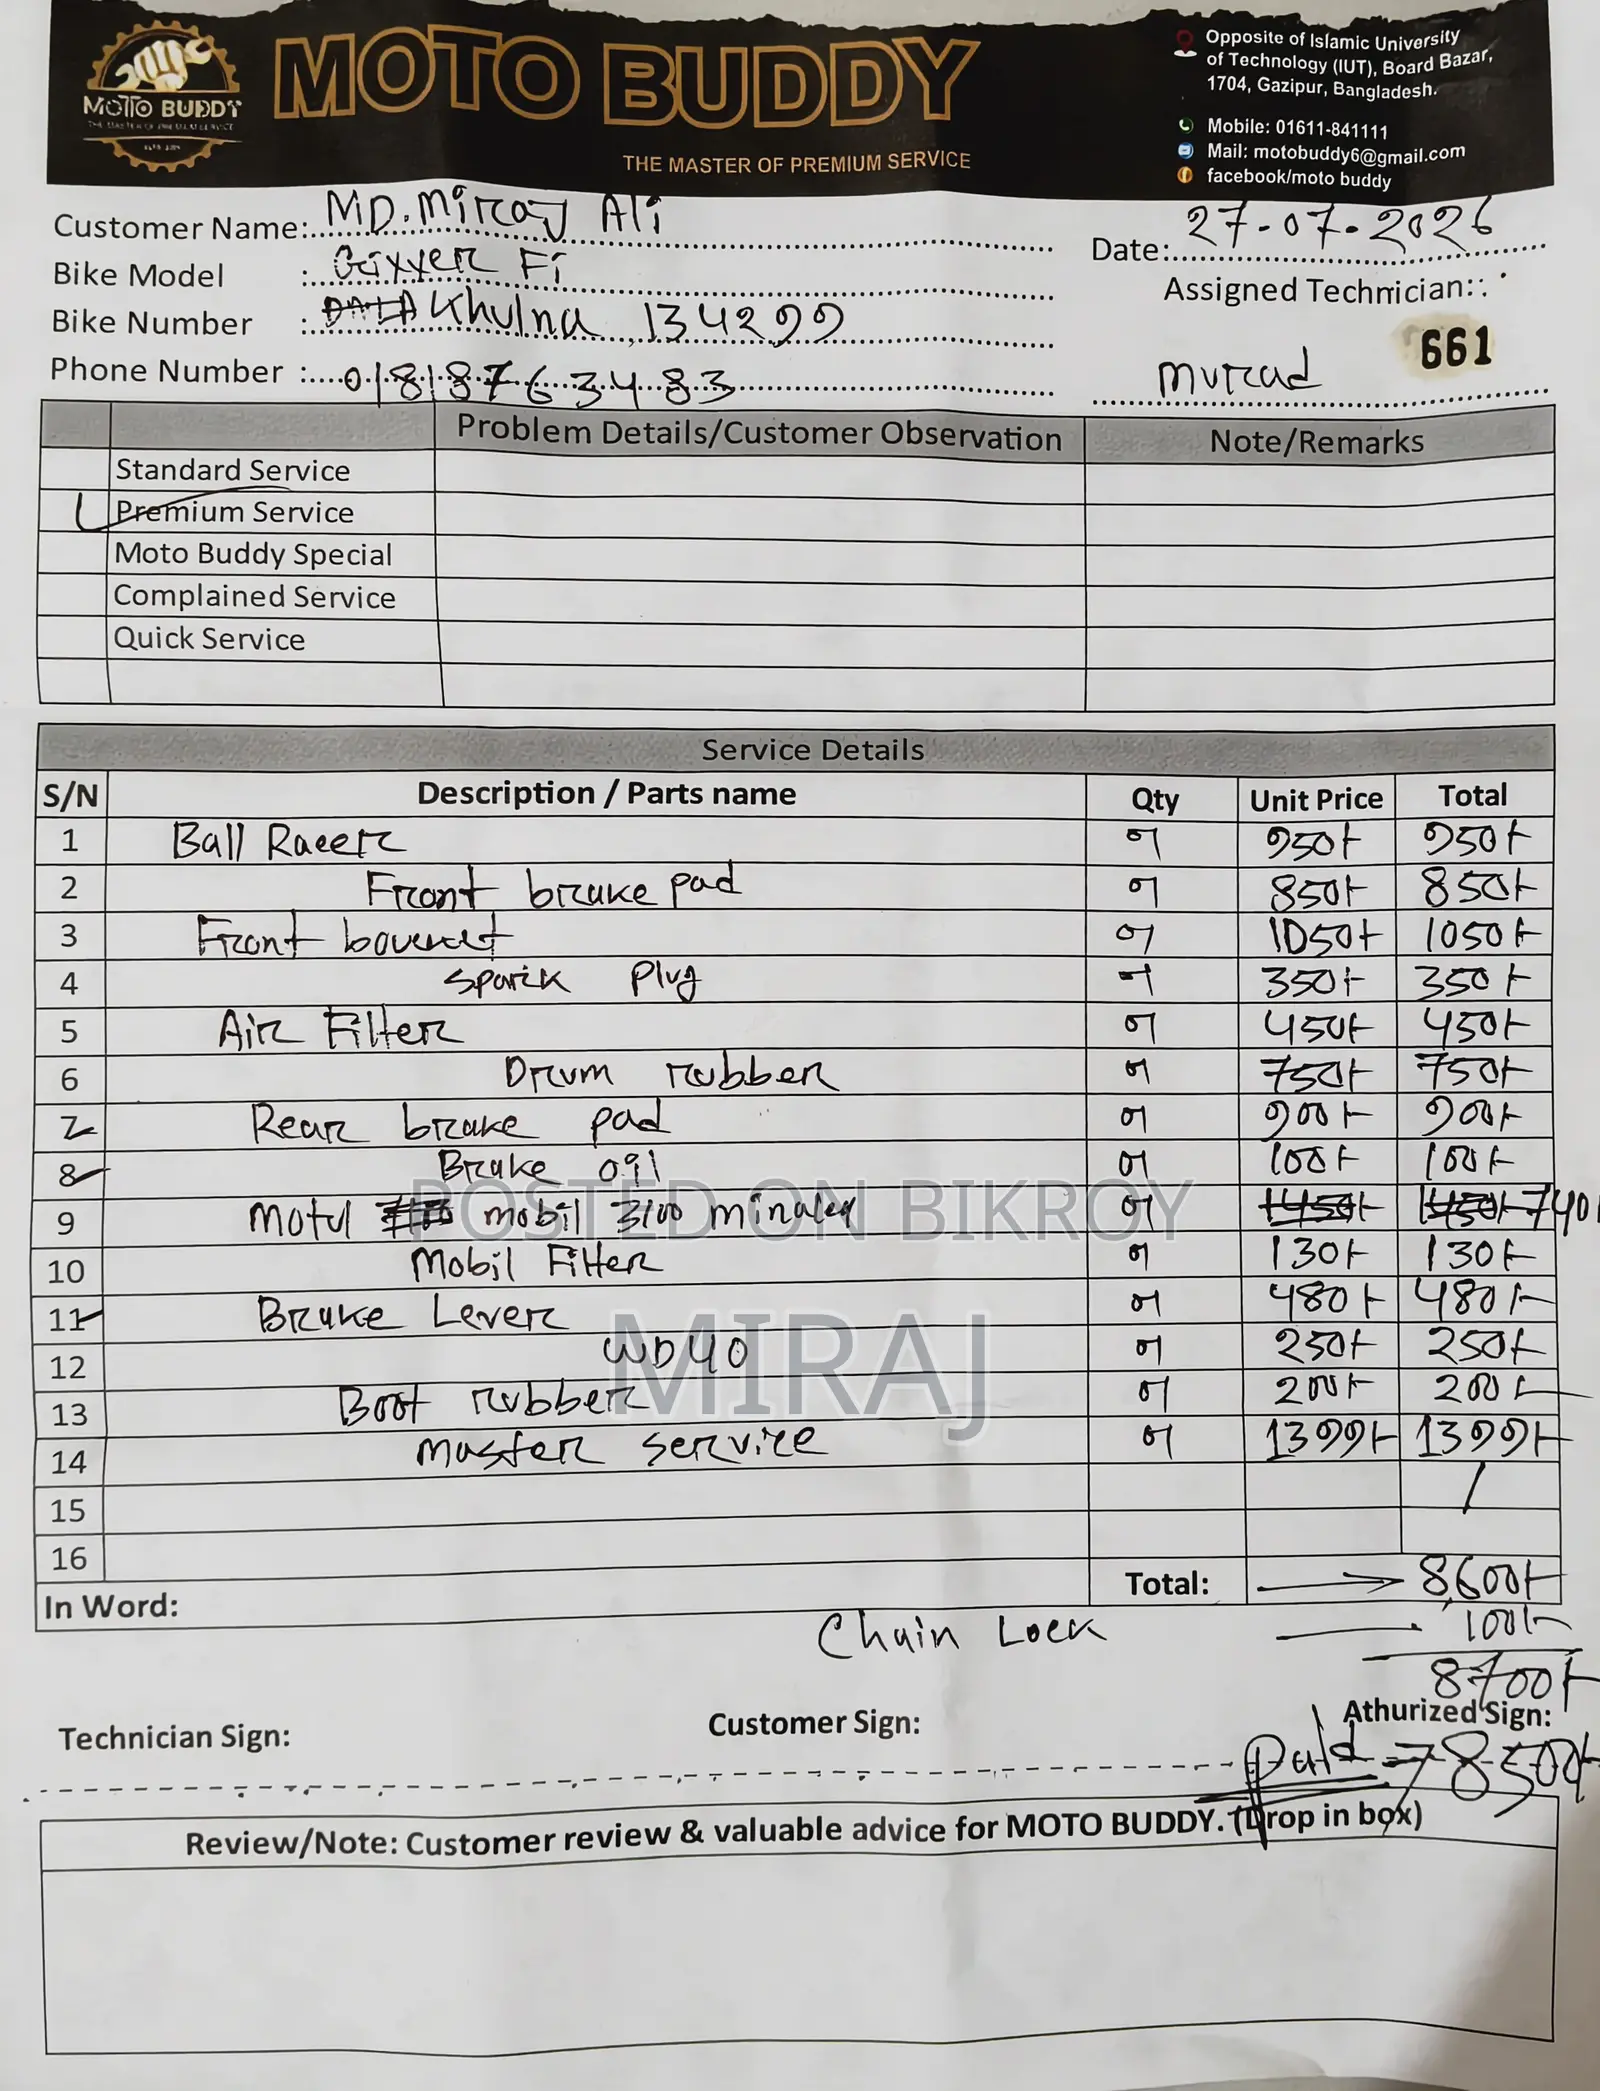 MOTO BUDDY
MOTTO BUDDY
THE MASTER OF PREMIUM SERVICE
Opposite of Islamic University
of Technology (IUT), Board Bazar,
1704, Gazipur, Bangladesh.
Mobile: 01611-841111
Mail: motobuddy6@gmail.com
facebook/moto buddy
Customer Name: MD. Miraj Ali
Date: 27-07-2026
Bike Model : Gixxer Fi
Assigned Technician::
Bike Number : Khulna 134299
661
Phone Number : 01818763483
Murad
Problem Details/Customer Observation Note/Remarks
Standard Service
Premium Service
Moto Buddy Special
Complained Service
Quick Service
Service Details
S/N Description / Parts name Qty Unit Price Total
1 Ball Racer 950/- 950/-
2 Front brake pad 850/- 850/-
3 Front 1050/- 1050/-
4 Spark Plug 350/- 350/-
5 Air Filter 450/- 450/-
6 Drum rubber 750/- 750/-
7 Rear brake pad 900/- 900/-
8 Brake 100/- 100/-
9 Motul mobil 3100 1450/- 1450/- 740
10 Mobil Filter 130/- 130/-
11 Brake Lever 480/- 480/-
12 WD40 250/- 250/-
13 Boot rubber 200/- 200/-
14 Master service 1399/- 1399/-
15
16
Total: 8,600/-
In Word:
Chain Lock 100/-
8700/-
Technician Sign: Customer Sign: Athurized Sign:
Paid = 8500/-
Review/Note: Customer review & valuable advice for MOTO BUDDY. (Drop in box)
POSTED ON BIKROY
MIRAJ